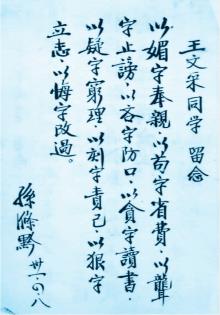 王文采同学 留念
以媚字奉親·以苟字省費·以聾
字止謗·以吝字防口·以貪字讀書·
以疑字窮理·以刻字責己·以狠字
立志·以悔字改過。
孫滌黔
卅一·〇·八